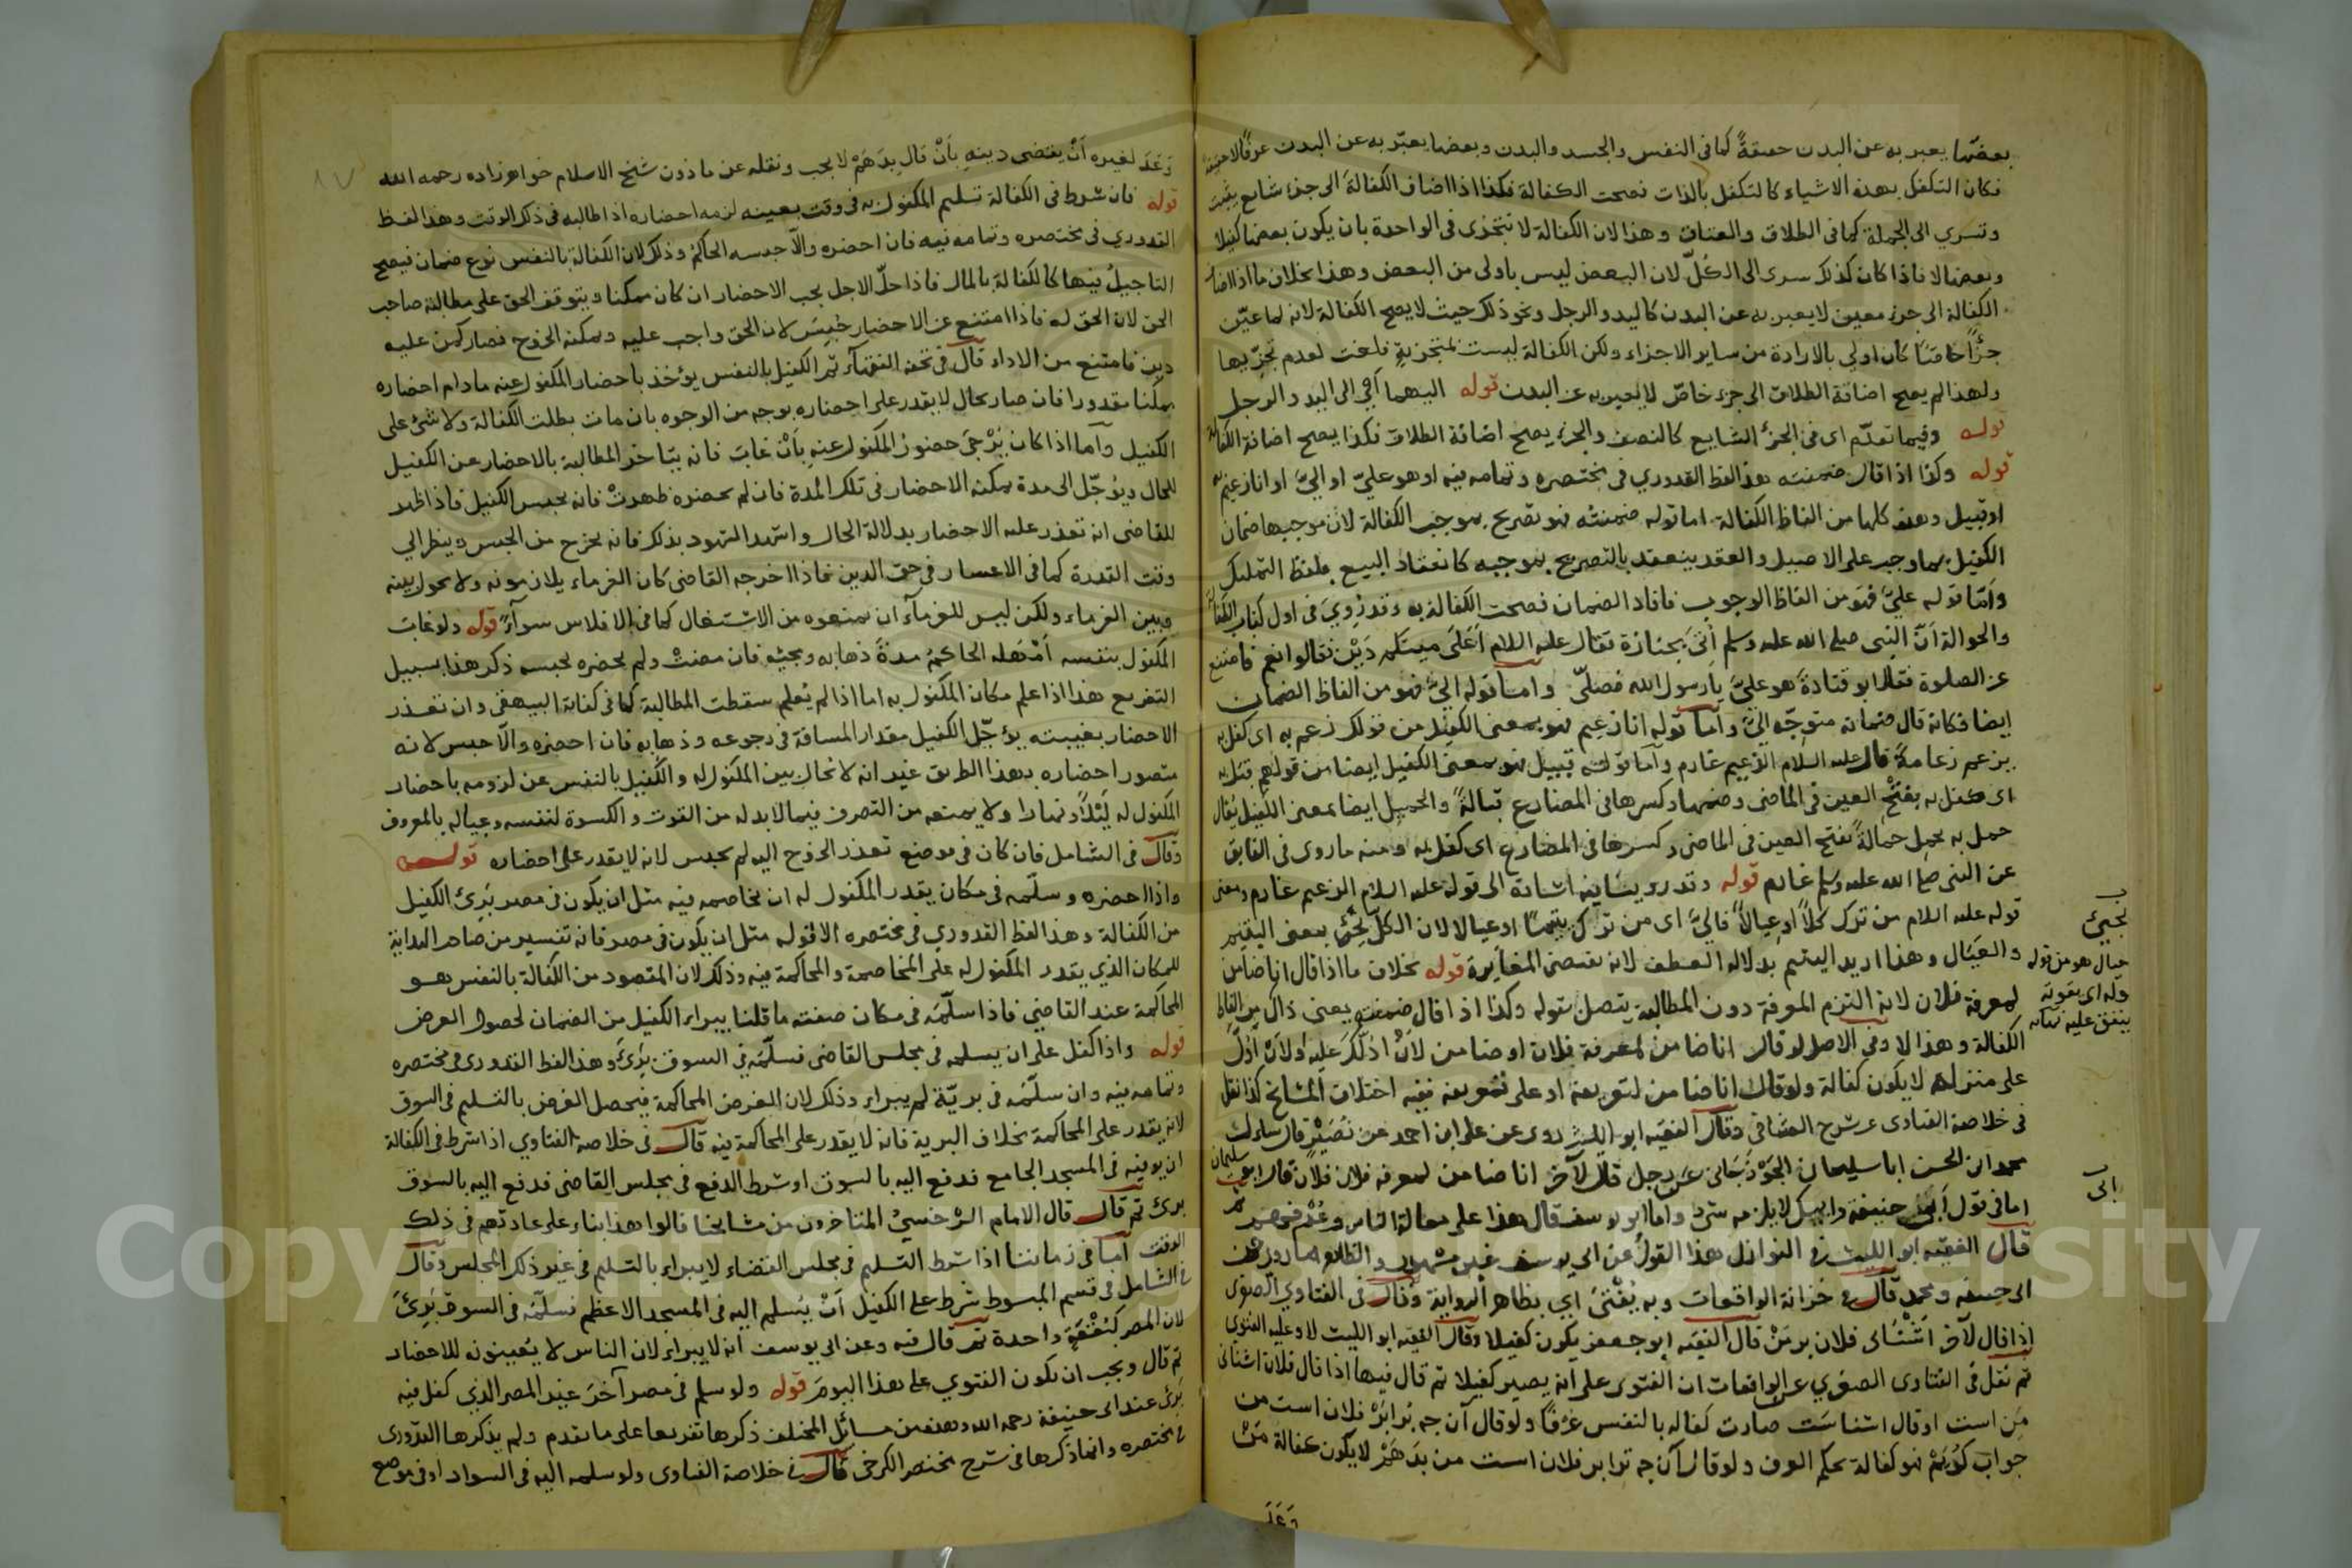 بعضها يعبر به عن البدن حقيقةً كما في النفس والجسد والبدن وبعضها يعبّر به عن البدن عرفًا لا حقيقة
فكان التكفل بهذه الاشياء كالتكفل بالذات فصحت الكفالة فكذا اذا اضاف الكفالة الى جزء شايع يثبت
وتسري الى الجملة كما في الطلاق والعتاق وهذا لان الكفالة لا تتجزى في الواحدة بان يكون بعضها كفيلا
وبعضها لا فاذا كان كذلك سرى الى الكُلّ لان البعض ليس باولى من البعض وهذا بخلاف ما اذا اضاف
الكفالة الى جزء معين لا يعبر به عن البدن كاليد والرجل ونحو ذلك حيث لا يصح الكفالة لانه لما عيّن
جزًا خاصّا كان اولى بالارادة من ساير الاجزاء ولكن الكفالة ليست بمتجزيةٍ فلغت لعدم تجزّيها
ولهذا لم يصح اضافة الطلاق الى جزء خاصّ لا يعبر به عن البدن قوله اليهما اي الى اليد والرجل
قوله وفيما تقدّم اى في الجزء الشايع كالنصف والجزء يصح اضافة الطلاق فكذا يصح اضافة الكفالة
قوله وكذا اذا قال ضمنته هذا لفظ القدوري في مختصره وتمامه فيه او هو عليّ او اليّ او انا زعيم به
او قبيل وهذه كلها من الفاظ الكفالة اما قوله ضمنته فهو تصريح بموجب الكفالة لان موجبها ضمان
الكفيل بما وجب على الاصيل والعقد ينعقد بالتصريح بموجبه كانعقاد البيع بلفظ التمليك
وامّا قوله عليّ فهو من الفاظ الوجوب فافاد الضمان فصحت الكفالة به وقد رُوِيَ في اول كتاب الكفالة
والحوالة انّ النبى صلى الله عليه وسلم اُتىَ بجنازة فقال عليه السلام اَعَلَى ميتكم دَيْن فقالوا نعم فامتنع
عن الصلوة فقال ابو قتادة هو عليّ يا رسول الله فصلّى واما قوله اليّ فهو من الفاظ الضمان
ايضا فكانه قال ضمانه متوجّه اليّ وأما قوله انا زعيم فهو بمعنى الكفيل من قولك زعم به اى كفل به
يزعم زعامةً قال عليه السلام الزعيم غارم وأما قوله قبيل فهو بمعنى الكفيل ايضا من قولهم قبل به
اى كفل به بفتح العين في الماضى وضمها وكسرها في المضارع قبالةً والحميل ايضا بمعنى الكفيل يقال
حمل به يحمل حمالةً بفتح العين في الماضى وكسرها في المضارع اى كفل به ومنه ما روى في الفايق
عن النبى صلى الله عليه وسلم غارم قوله وقد روينا فيه اشارة الى قوله عليه السلام الزعيم غارم ومعنى
قوله عليه السلام من ترك كلاً او عيالاً فاليّ اى من ترك يتيمًا او عيالا لان الكل يجئ بمعنى اليتيم
والعيَال وهذا اريد اليتيم بدلالة العطف لانه يقتضى المغايرة قوله بخلاف ما اذا قال انا ضامن
لمعرفة فلان لانه التزم المعرفة دون المطالبة يتصل بقوله وكذا اذا قال ضمنته يعنى ذاك من الفاظ
الكفالة وهذا لا وفي الاصل لو قال انا ضامن لمعرفة فلان او ضامن لاَنْ ادلّك عليه او لان ادلّك
على منزله لا يكون كفالة ولو قال انا ضامن لتعريفه او على تعريفه ففيه اختلاف المشايخ كذا نقل
في خلاصة الفتاوى وقال الفقيه ابو الليث روى عن على ابن احمد عن نُصَيْر قال سالت
محمد ابن الحسن ابا سليمان الجَوْزَجَانى عن رجل قال لآخر انا ضامن لمعرفة فلان فلان قال ابو سليمان
اما في قول أبي حنيفة وابيك لا يلزمه شئ واما ابو يوسف قال هذا على معاملة الناس وعُرْفهم
قال الفقيه ابو الليث في النوازل هذا القول عن ابى يوسف غير مشهور والظاهر ما روى عن
ابى حنيفة ومحمد قال في خزانة الواقعات وبه يُفْتَى اي بظاهر الرواية وقال في الفتاوي الصغرى
اذا قال لآخر اَشْنَاى فلان برمَنْ قال الفقيه ابو جعفر يكون كفيلا وقال الفقيه ابو الليث لا وعليه الفتوى
ثم نقل في الفتاوى الصغرى عن الواقعات ان الفتوى على انه يصير كفيلا ثم قال فيها اذا قال فلان اشناى
من است او قال اشناست صارت كفالة بالنفس عُرْفًا ولو قال آن جه ترا برْ فلان است من
جواب كُوْيَمْ فهو كفالة بحكم العرف ولو قال آن جه ترا بر فلان است من بدَهَمْ لا يكون كفالة
وَعَدَ
يجيئ
عيال هو من قوله
وله اى يقوته
ينفق عليه
ابى
وَعَدَ لغيره اَنْ يقضى دينه بأنْ قال بدَهَمْ لا يجب ونقله عن ماذون شيخ الاسلام خواهر زاده رحمه الله
قوله فان شرط في الكفالة تسليم المكفول به في وقت بعينه لزمه احضاره اذا طالبه في ذلك الوقت وهذا لفظ
القدوري في مختصره وتمامه فيه فان احضره والاّ حبسه الحاكم وذلك لان الكفالة بالنفس نوع ضمان فيصح
التاجيلُ فيها كالكفالة بالمال فاذا حلّ الاجل يجب الاحضار ان كان ممكنا ويتوقف الحق على مطالبة صاحب
الحق لان الحق له فاذا امتنع عن الاحضار حُبِسَ لان الحق واجب عليه ويمكنه الخروج فصار كمن عليه
دين فامتنع من الاداء قال في تحفة الفقهاء ثم الكفيل بالنفس يؤخذ باحضار المكفول عنه ما دام احضاره
ممكنا مقدورا فان صار بحال لا يقدر على احضاره بوجه من الوجوه بان مات بطلت الكفالة ولا شئ على
الكفيل وأما اذا كان يُرْجىَ حضور المكفول عنه بأنْ غابَ فانه يتاخر المطالبة بالاحضار عن الكفيل
للحال ويؤجّل الى مدة يمكنه الاحضار في تلك المدة فان لم يحضره ظهرتْ فانه يحبس الكفيل فاذا ظهر
للقاضى انه تعذر عليه الاحضار بدلالة الحال واشهد الشهود بذلك فانه يخرج من الحبس وينظر الي
وقت القدرة كما في الاعسار في حق الدين فاذا اخرجه القاضى كان الغرماء يلازمونه ولا يحول بينه
وبين الغرماء ولكن ليس للغرمآء ان يمنعوه من الاشتغال كما في الافلاس سوآءً قوله ولو غاب
المكفول بنفسه اَمْهَله الحاكمُ مدةَ ذهابه ومجيئه فان مضتْ ولم يحضره يحبسه ذكر هذا بسبيل
التفريع هذا اذا علم مكان المكفول به اما اذا لم يُعلم سقطت المطالبة كما في كفاية البيهقي وان تعذر
الاحضار بغيبته يؤجّل الكفيل مقدار المسافة في رجوعه وذهابه فان احضره والاّ حبس لانه
متصور احضاره بهذا الطريق غير انه لا يحال بين المكفول له والكفيل بالنفس عن لزومه باحضار
المكفول له لَيْلاً ونهارا ولا يمنعه من التصرف فيما لا بد له من القوت والكسوة لنفسه وعياله بالمعروف
وقال في الشامل فان كان في موضع تعذر الخروج اليه لم يحبس لانه لا يقدر على احضاره قوله
واذا احضره وسلّمه في مكان يقدر المكفول له ان يخاصمه فيه مثل ان يكون في مصر بَرِئ الكفيل
من الكفالة وهذا لفظ القدوري في مختصره الا قوله مثل ان يكون في مصر فانه تفسير من صاحب البداية
للمكان الذي يقدر المكفول له على المخاصمة والمحاكمة فيه وذلك لان المقصود من الكفالة بالنفس هو
المحاكمة عند القاضي فاذا سلّمَه في مكان صفته ما قلنا يبراء الكفيل من الضمان لحصول الغرض
قوله واذا كفل على ان يسلمه في مجلس القاضى فسلّمَه في السوق بَرِئَ وهذا لفظ القدورى في مختصره
وتمامه فيه وان سلّمَه في بريّة لم يبراء وذلك لان الغرض المحاكمة فيحصل الغرض بالتسليم في السوق
لانه يقدر على المحاكمة بخلاف البرية فانه لا يقدر على المحاكمة فيه قال في خلاصة الفتاوي اذا شرط في الكفالة
ان يوفيه في المسجد الجامع فدفع اليه بالسوق او شرط الدفع في مجلس القاضى فدفع اليه بالسوق
برئ ثم قال قال الامام السرخسيُ المتاخرون من مشايخنا قالوا هذا بناء على عادتهم في ذلك
الوقت أما في زماننا اذا شرط التسليم في مجلس القضاء لا يبراء بالتسليم في غير ذلك المجلس وقال
في الشامل في قسم المبسوط شرط على الكفيل اَنْ يُسلم اليه في المسجد الاعظم فسلّمَه في السوق بَرِئَ
لان المصر كبُقْعَةٍ واحدة ثم قال فيه وعن ابى يوسف انه لا يبراء لان الناس لا يُعينونه للاحضار
ثم قال ويجب ان يكون الفتوي على هذا اليوم قوله ولو سلم في مصر آخرَ غير المصر الذي كفل فيه
بَرِئَ عند ابى حنيفة رحمه الله وهذه من مسائل المختلف ذكرها تفريعا على ما تقدم ولم يذكرها القدورى
في مختصره وانما ذكرها في شرح مختصر الكرخي قال في خلاصة الفتاوى ولو سلمه اليه في السواد او في موضع
Copyright © King Saud University